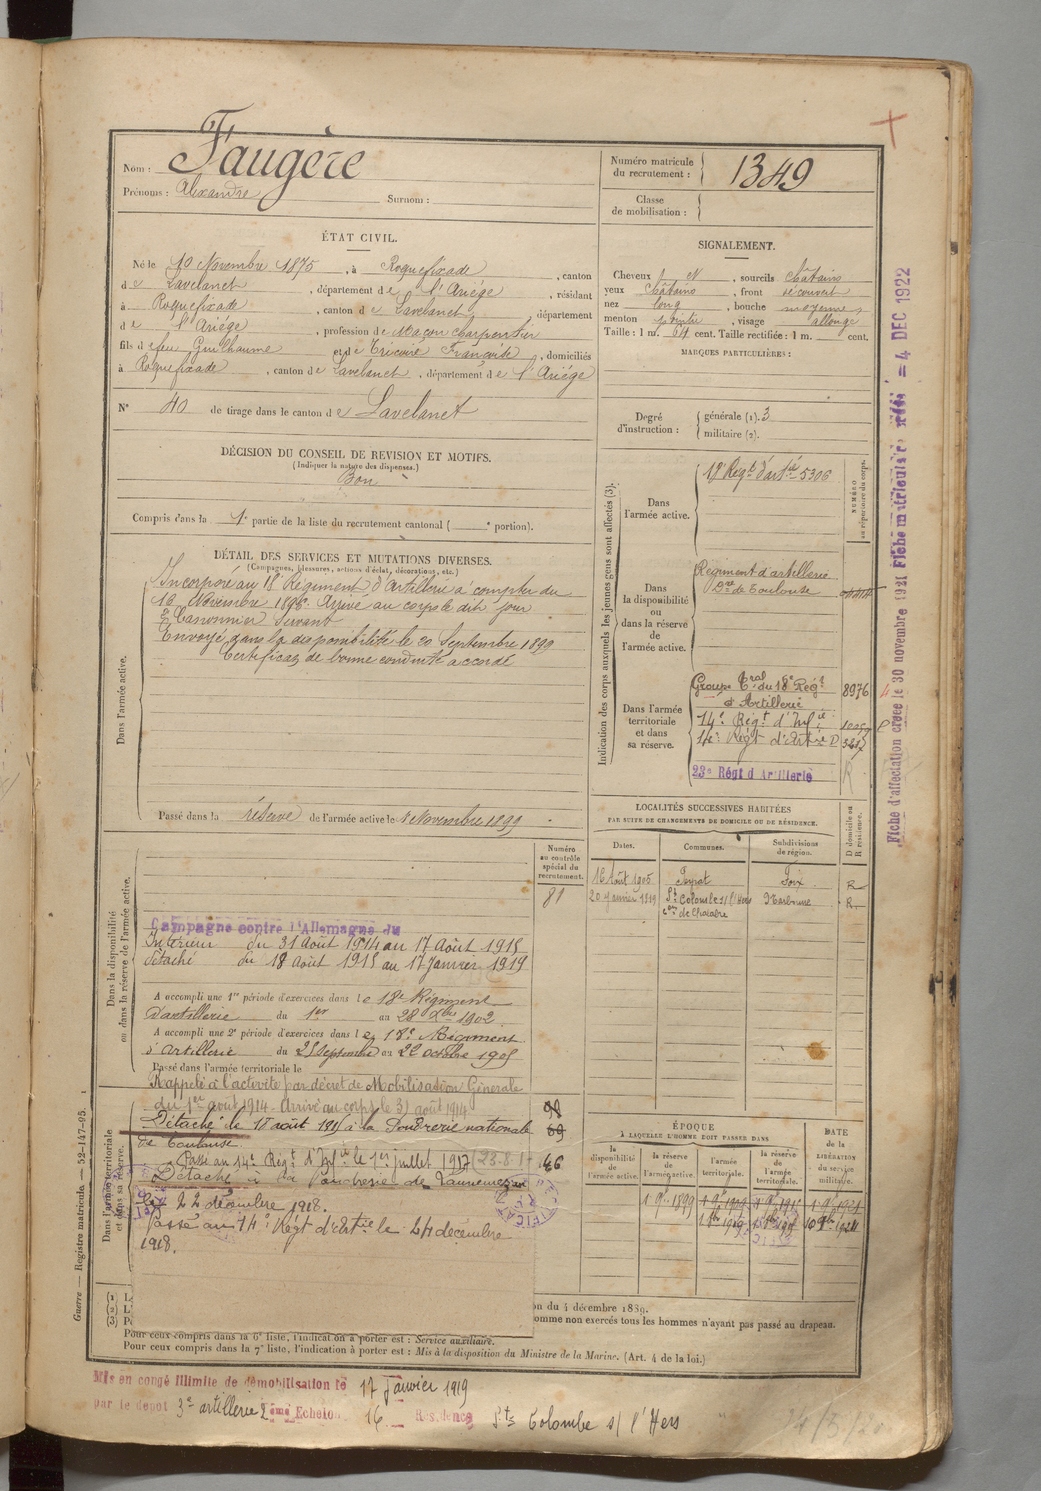 Nom : Faugère
Prénoms : Alexandre Surnom :
Numéro matricule
du recrutement : 1349
Classe
de mobilisation :
ÉTAT CIVIL.
Né le 10 Novembre 1875, à Roquefixade, canton
de Lavelanet, département de l'Ariége, résidant
à Roquefixade, canton de Lavelanet, département
de l'Ariége, profession de Maçon charpentier
fils de feu Guilhaume et de Tricoire Françoise, domiciliés
à Roquefixade, canton de Lavelanet, département de l'Ariége
N° 40 de tirage dans le canton de Lavelanet
SIGNALEMENT.
Cheveux N, sourcils Châtains
yeux Châtains, front découvert
nez long, bouche moyenne
menton pointu, visage allongé
Taille : 1 m. 64 cent. Taille rectifiée : 1 m. cent.
MARQUES PARTICULIÈRES :
Degré
d'instruction :
générale (1). 3
militaire (2).
DÉCISION DU CONSEIL DE REVISION ET MOTIFS.
(Indiquer la nature des dispenses.)
Bon
Compris dans la 1e partie de la liste du recrutement cantonal ( e portion).
DÉTAIL DES SERVICES ET MUTATIONS DIVERSES.
(Campagnes, blessures, actions d'éclat, décorations, etc.)
Dans l'armée active.
Incorporé au 18 Régiment d'artillerie à compter du
16 Novembre 1896. Arrivé au corps le dit jour
2e Canonnier Servant
Envoyé dans la disponibilité le 20 Septembre 1899
Certificat de bonne conduite accordé
Passé dans la réserve de l'armée active le 1 Novembre 1899
Indication des corps auxquels les jeunes gens sont affectés (3).
NUMÉRO
au répertoire du corps.
Dans
l'armée active.
18e Régt d'artie 5306
Dans
la disponibilité
ou
dans la réserve
de
l'armée active.
Régiment d'artillerie
de Toulouse
Dans l'armée
territoriale
et dans
sa réserve.
Groupe tral du 18e Régt 8976
d'Artillerie
14e Régt d'Infie
14e Régt d'Artie D
23e Régt d'Artillerie R
Fiche d'affectation créée le 30 novembre 1921 Fiche matriculaire = 4 DEC 1922
LOCALITÉS SUCCESSIVES HABITÉES
PAR SUITE DE CHANGEMENTS DE DOMICILE OU DE RÉSIDENCE.
Dates. Communes. Subdivisions
de région.
D domicile ou
R résidence.
16 Août 1905 Peyrat Foix R
20 Janvier 1919 Ste Colombe s/ l'Hers Narbonne R.
con de Chalabre
Numéro
au contrôle
spécial du
recrutement.
81
Dans la disponibilité
ou dans la réserve de l'armée active.
Campagne contre l'Allemagne du
Intérieur du 31 Août 1914 au 17 Août 1915
détaché du 18 Août 1915 au 17 Janvier 1919
A accompli une 1re période d'exercices dans le 18e Régiment
d'artillerie du 1er au 28 Xbre 1902
A accompli une 2e période d'exercices dans le 18e Régiment
d'artillerie du 25 Septembre au 22 octobre 1905
Passé dans l'armée territoriale le
Rappelé à l'activité par décret de Mobilisation Générale
du 1er août 1914. Arrivé au corps le 31 août 1914
98
Dans l'armée territoriale
et dans sa réserve.
Détaché le 18 août 1915 à la Poudrerie nationale 69
de Toulouse
Passé au 14e Régt d'Infie le 1er juillet 1917 46
Détaché à la Poudrerie de
le 22 décembre 1918.
Passé au 14e Régt d'Artie le 24 décembre
1918.
ÉPOQUE
À LAQUELLE L'HOMME DOIT PASSER DANS
la
disponibilité
de
l'armée active.
la réserve
de
l'armée active.
l'armée
territoriale.
la réserve
de
l'armée
territoriale.
DATE
de la
LIBÉRATION
du service
militaire.
Guerre — Registre matricule. — 52-147-95.
(1) L
(2) L'
(3) P
on du 4 décembre 1889.
omme non exercés tous les hommes n'ayant pas passé au drapeau.
Pour ceux compris dans la 6e liste, l'indication à porter est : Service auxiliaire.
Pour ceux compris dans la 7e liste, l'indication à porter est : Mis à la disposition du Ministre de la Marine. (Art. 4 de la loi.)
Mis en congé illimité de démobilisation le 17 Janvier 1919
par le dépôt 3e artillerie 2ème Echelon 16 Résidence Ste Colombe s/ l'Hers